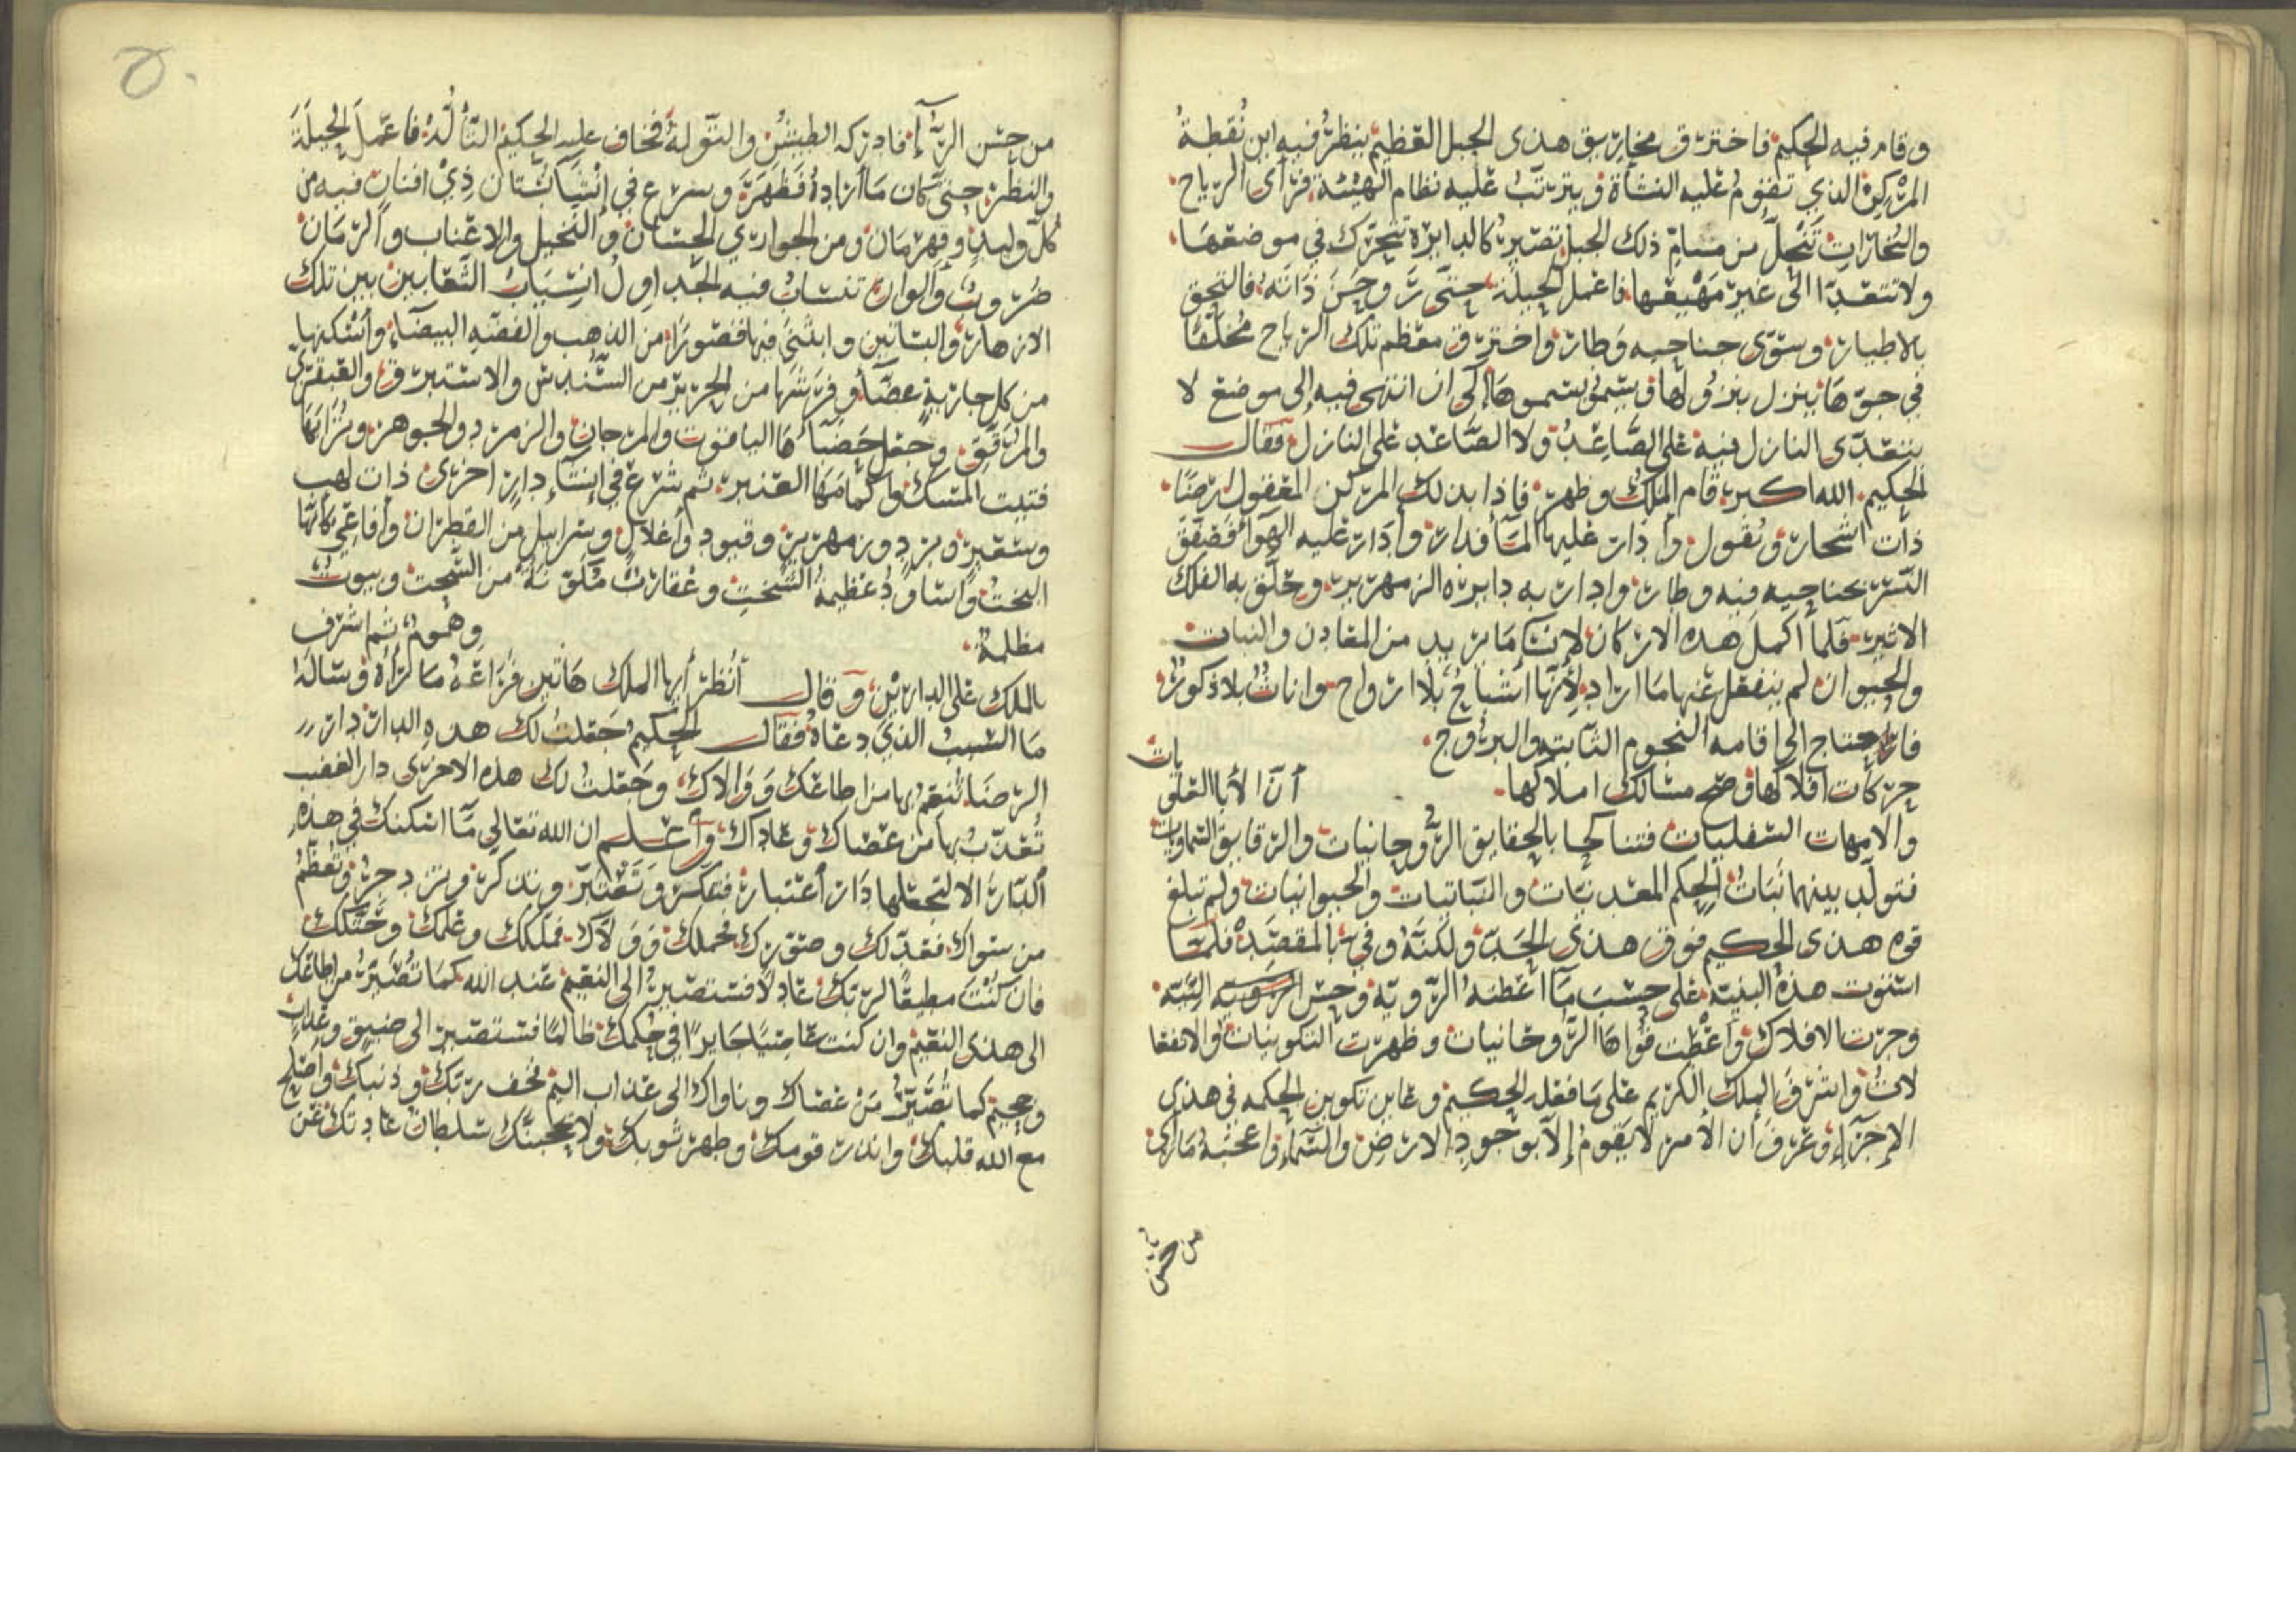 وقام فيه الحكيم فاخترق مخاريق هذى الجبل العظيم ينظر فيه اين نقطة
المركز الذي تقوم عليه النشأة ويترتب عليه نظام الهيئة فرأى الرياح
والبخارات تنحل من مسام ذلك الجبل تصير كالدايرة تتحرك في موضعها
ولا تتعدا الى غير مهيعها فاعمل الحيلة حتى روحن ذاته فالتحق
بالاطيار وسوى جناحيه وطار واخترق معظم تلك الرياح محلقا
في جوها ينزل بنزولها ويسمى بسموها إلى ان انتهى فيه إلى موضع لا
يتعدى النازل فيه على الصاعد ولا الصاعد على النازل فقال
الحكيم الله اكبر قام الملك وظهر فاذا بذلك المركز المعقول ارضا
ذات اشجار وبقول وادار عليها الماء فدار وأدار عليه الهوا فصفق
النسر بجناحيه فيه وطار وادار به دايره الزمهرير وحلق به الفلك
الاثير فلما أكمل هذه الاركان لانشا ما يريد من المعادن والنبات
والحيوان لم ينفعل عنها ما اراد لأنها أشباح بلا ارواح واناث بلا ذكور
فاحتاج الى اقامه النجوم الثابته والبروج
حركات افلاكها وصح مسالك املاكها أن الأبا العلويات
والامهات السفليات فتناكحا بالحقايق الروحانيات والرقايق السماويات
فتولد بينهما نبات الحكم المعدنيات والنباتيات والحيوانيات ولم تبلغ
قوه هذى الحكيم فوق هذى الحد ولكنه وفي بالمقصد فلما
استوت هذه البنية على حسب ما اعطته الروية وحسن الرتبه
وجرت الافلاك وأعطت قواها الروحانيات وظهرت التكوينات والانفعا
لات واشرف الملك الكريم على ما فعله الحكيم وعاين تكوين الحكمه في هذي
الاجزاء وعرف أن الأمر لا يقوم إلا بوجود الارض والسماء واعجبه ما رأى
من حسن
من حسن الرآء فادركه الطيش والتوله فخاف عليه الحكيم التأله فاعمل الحيلة
والنظر حتى كان ما اراده فظهر وشرع في إنشا بستان ذي افنان فيه من
كل وليد وقهرمان ومن الجواري الحسان والنخيل والاعناب والرمان
ضروب والوان تنساب فيه الجداول انسياب الثعابين بين تلك
الازهار والبساتين وابتنى فيها قصورا من الذهب والفضه البيضاء وأسكنها
من كل جارية غضا وفرشها من الحرير من السندس والاستبرق والعبقري
والمرقق وجعل حصبآها الياقوت والمرجان والزمرد والجوهر وترابها
فتيت المسك واكمامها العنبر ثم شرع في إنشاء دار اخرى ذات لهب
وسعير وبرد وزمهرير وقيود وأغلال وسرابيل من القطران وأفاعي كأنها
البخت واساود عظيمة السخت وعقارب من السحت وبيوت
مظلمة وهموم ثم اشرف
بالملك على الدارين وقال أنظر أيها الملك هاتين فراعه ما رأه وساله
ما السبب الذي دعاه فقال الحكيم جعلت لك هذه الدار دار
الرضا تنعم بها من اطاعك ووالاك وجعلت لك هذه الاخرى دار الغضب
تعذب بها من عصاك وعاداك وأعلم ان الله تعالى ما اسكنك في هذه
الدار الا لتجعلها دار أعتبار فتفكر وتعتبر وتدكر وتزدجر وتعظم
من سواك فعدلك وصورك فجملك وولاك فملكك وعلمك وحنكك
فان كنت مطيعا لربك عادلا فستصير الى النعيم عند الله كما تصير من اطاعك
الى هذى النعيم وان كنت عاصيا جايرا في حكمك ظالما فستصير الى ضيق وعذاب
وجحيم كما تصير من عصاك وناواك الى عذاب اليم فخف ربك وذنبك وأصلح
مع الله قلبك وانذر قومك وطهر ثوبك ولا يحجبنك سلطان عادتك عن